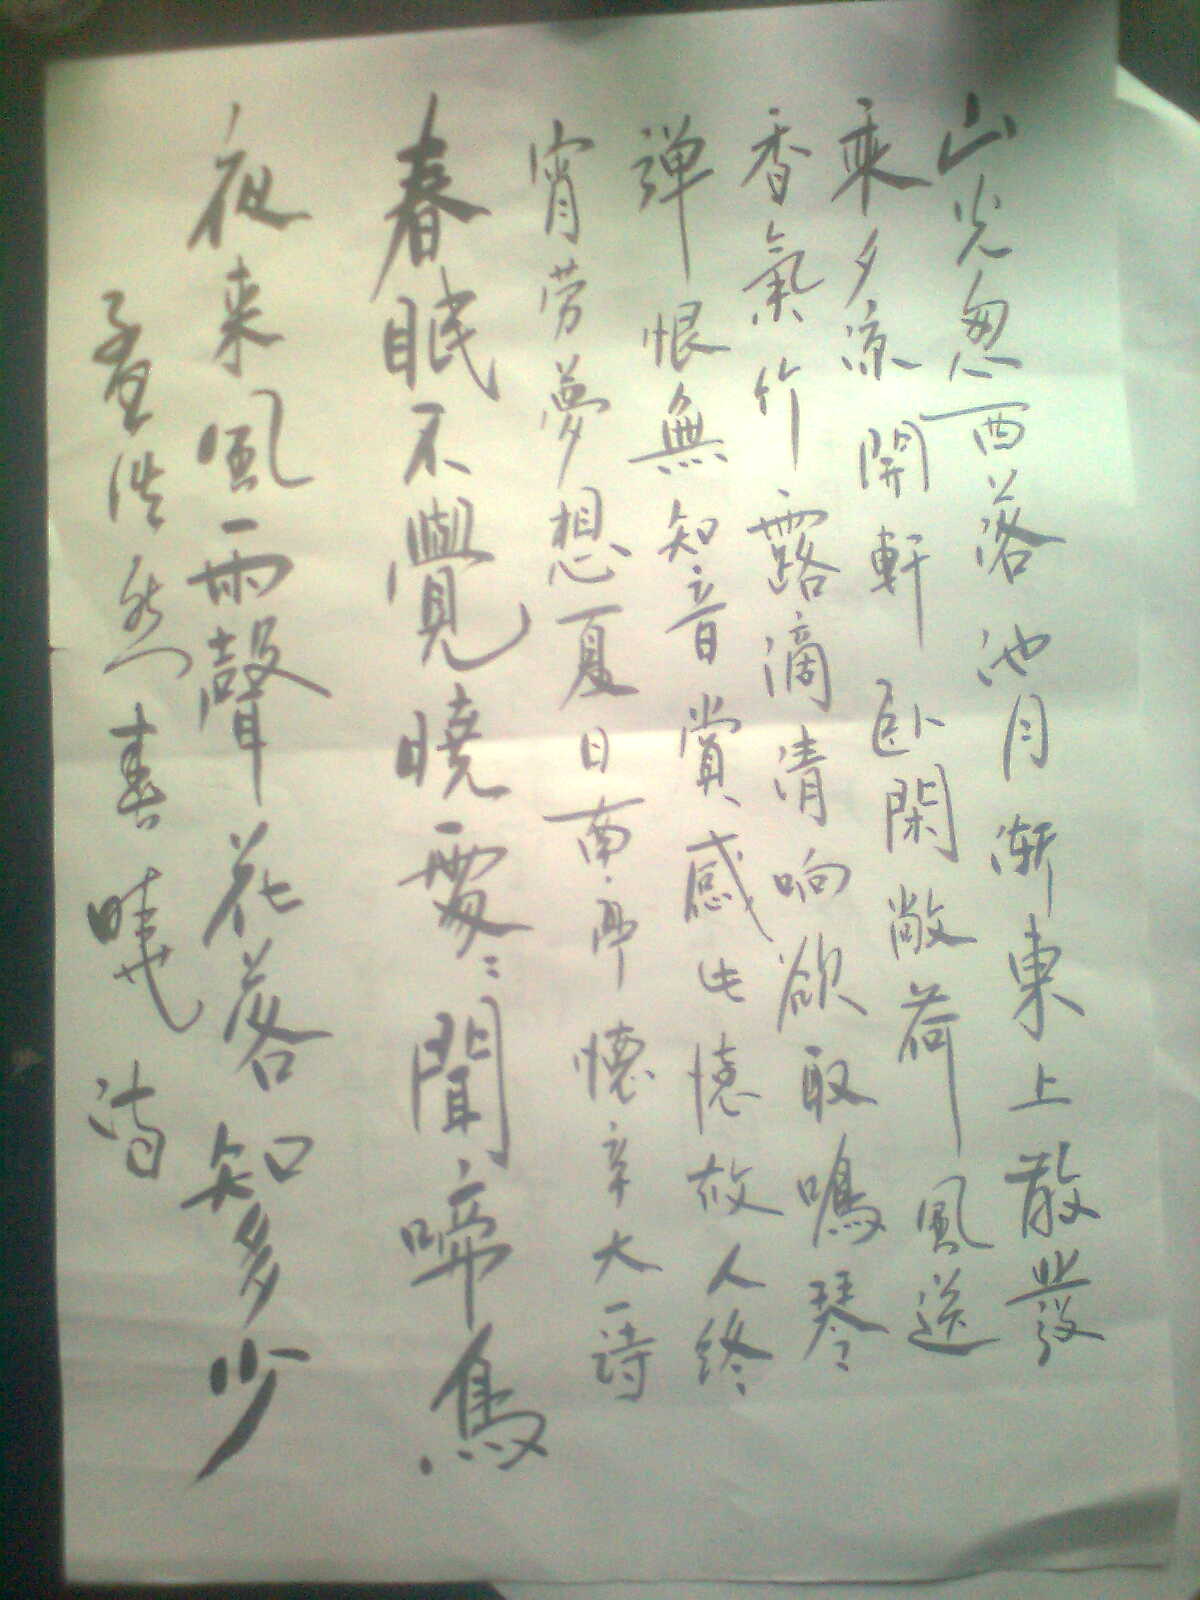 山光忽西落池月渐東上散發
乘夕凉開軒卧閑敞荷風送
香氣竹露滴清响欲取鳴琴
弹恨無知音賞感此懷故人终
宵劳夢想夏日南亭懷辛大詩
春眠不覺曉處〻聞啼鳥
夜来風雨聲花落知多少
孟浩然春曉詩